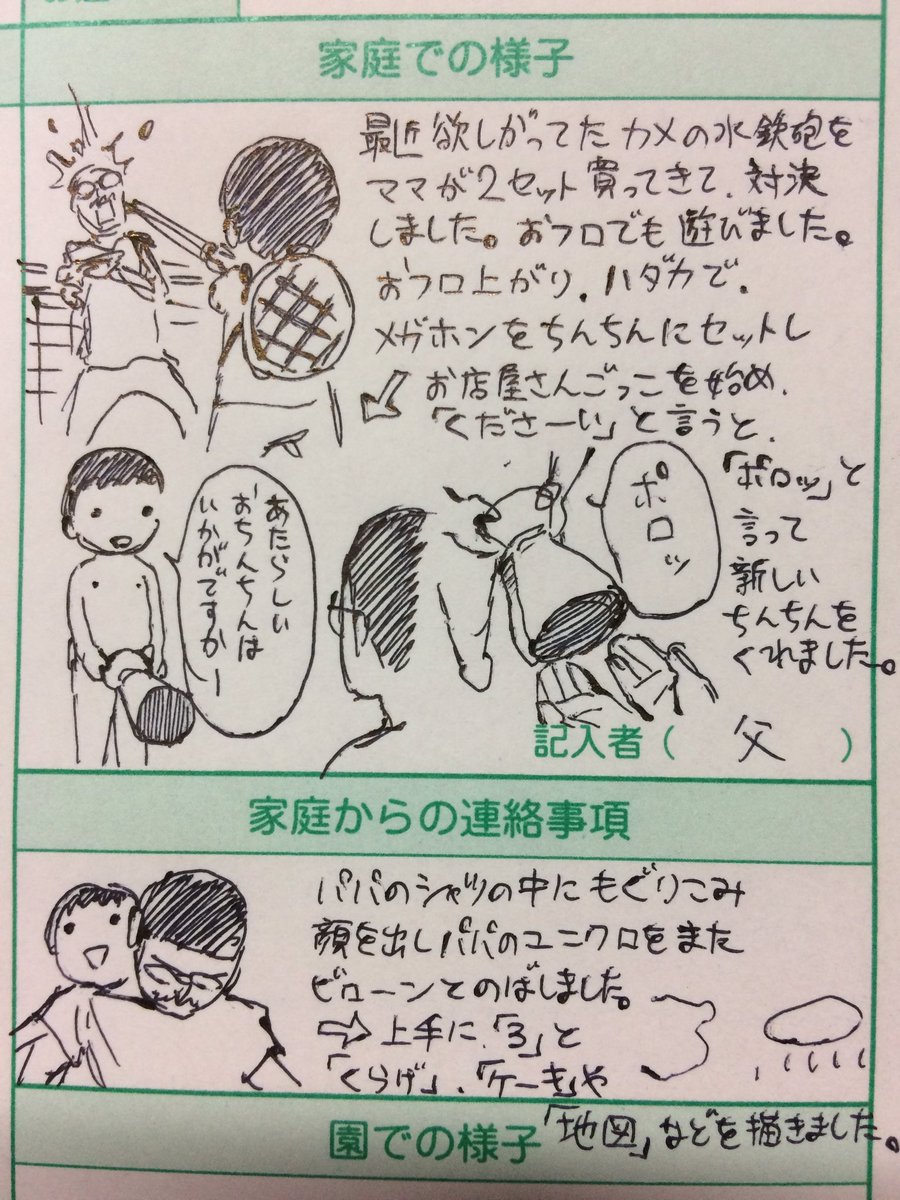 家庭での様子
最近欲しがってたカメの水鉄砲を
ママが2セット買ってきて、対決
しました。おフロでも遊びました。
おフロ上がり、ハダカで、
メガホンをちんちんにセットし
お店屋さんごっこを始め、
「くださーい」と言うと、
「ポロッ」と
言って
新しい
ちんちんを
くれました。
あたらしい
おちんちんは
いかがですかー
ポロッ
記入者（ 父 ）
家庭からの連絡事項
パパのシャツの中にもぐりこみ
顔を出しパパのユニクロをまた
ビローンとのばしました。
⇨上手に、「3」と
「くらげ」、「ケーキ」や
「地図」などを描きました。
園での様子